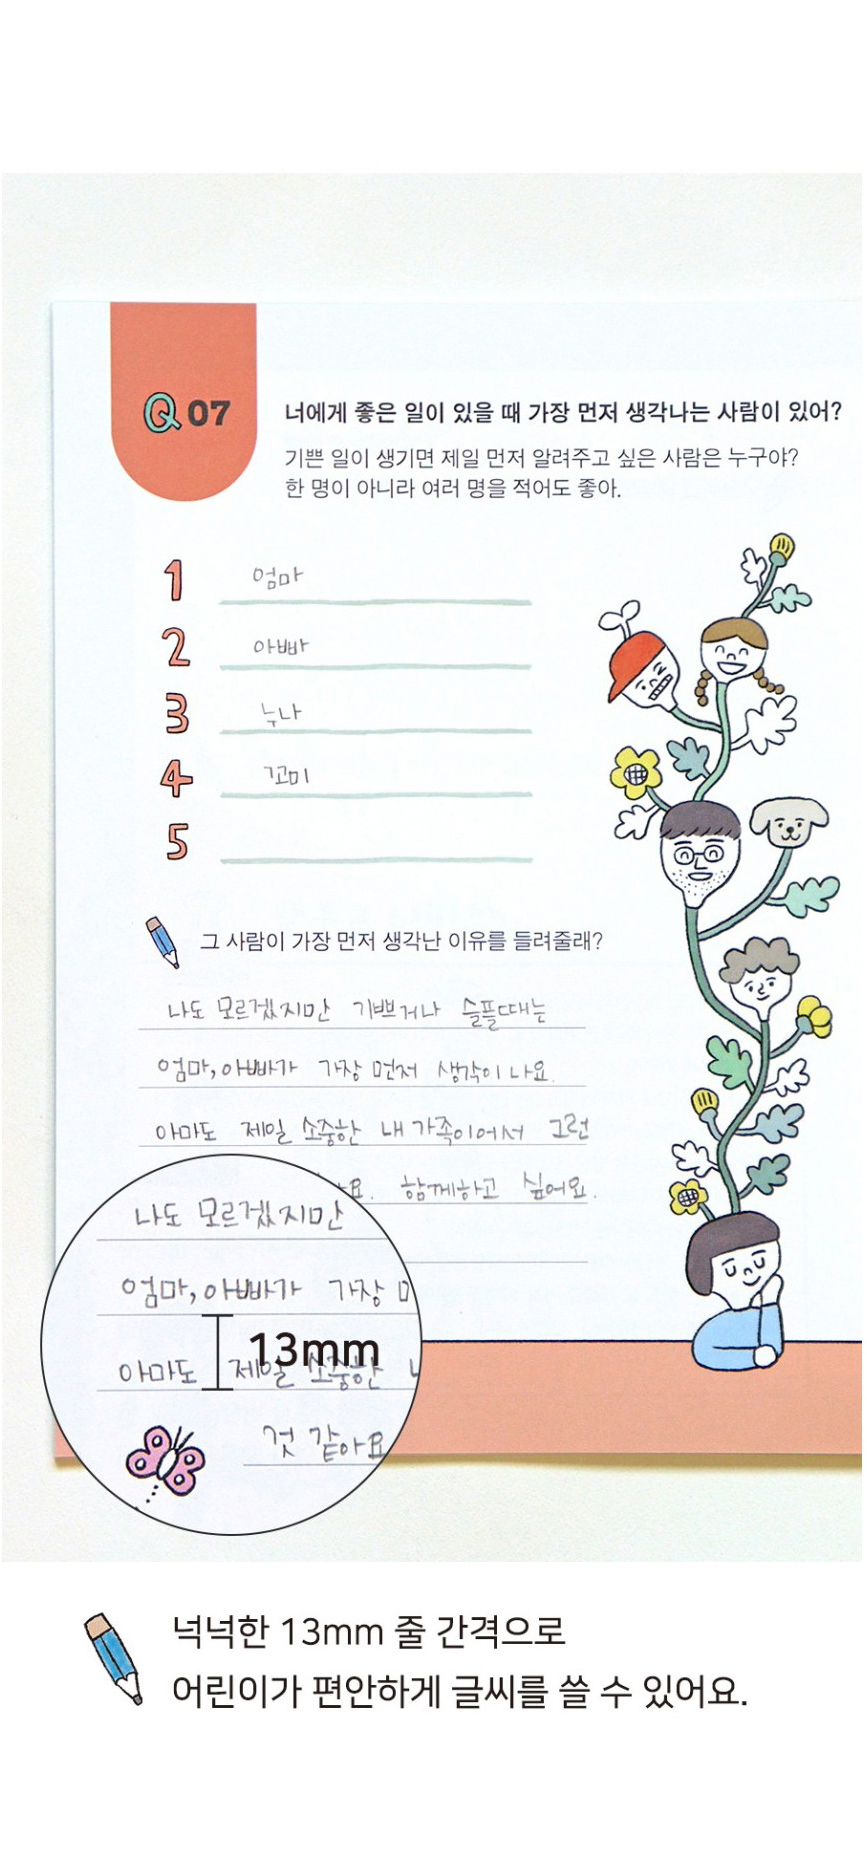 Q 07
너에게 좋은 일이 있을 때 가장 먼저 생각나는 사람이 있어?
기쁜 일이 생기면 제일 먼저 알려주고 싶은 사람은 누구야?
한 명이 아니라 여러 명을 적어도 좋아.
1 엄마
2 아빠
3 누나
4 꼬미
5
그 사람이 가장 먼저 생각난 이유를 들려줄래?
나도 모르겠지만 기쁘거나 슬플때는
엄마, 아빠가 가장 먼저 생각이 나요.
아마도 제일 소중한 내 가족이어서 그런
요. 함께하고 싶어요.
나도 모르겠지만
엄마, 아빠가 가장
13mm
아마도 제일 소중한
것 같아요
넉넉한 13mm 줄 간격으로
어린이가 편안하게 글씨를 쓸 수 있어요.